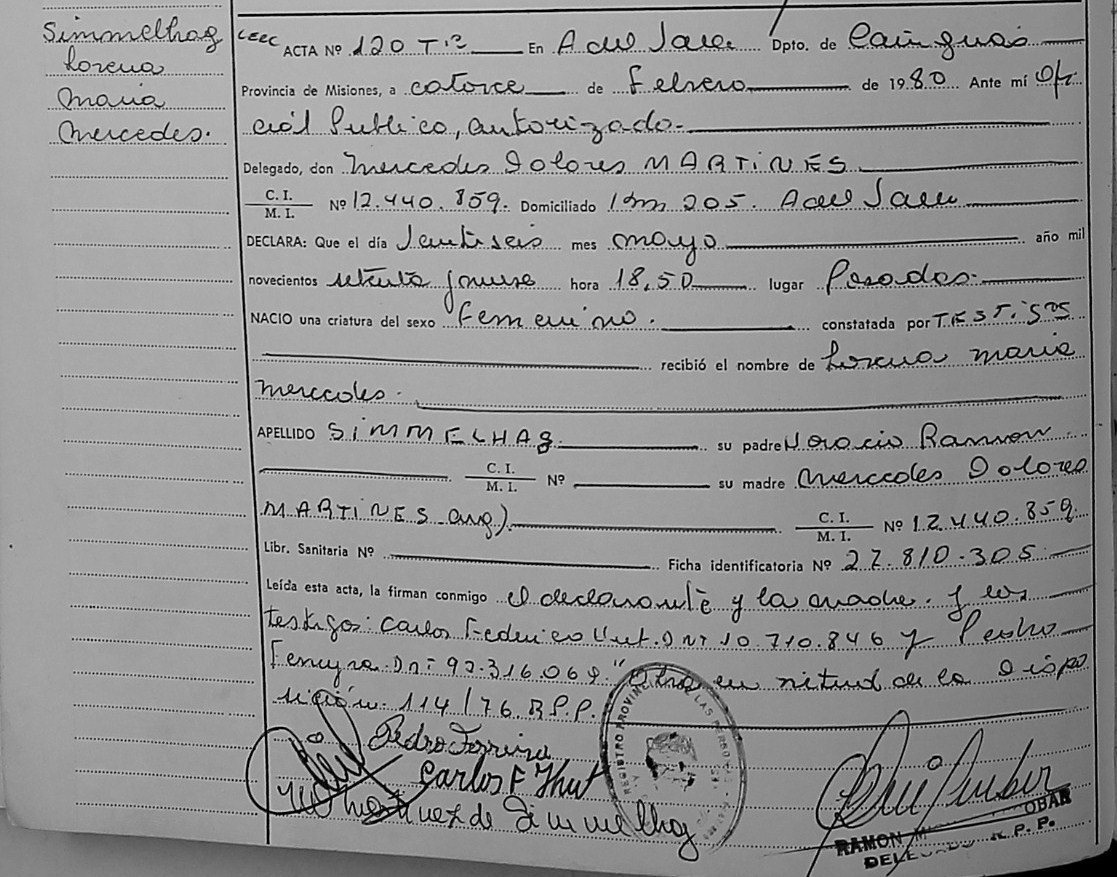 Simmelhag
Lorena
Maria
Mercedes.
ACTA Nº 120 Tº En A del Valle Dpto. de Cainguás
Provincia de Misiones, a catorce de Febrero de 1980 Ante mí Ofi
cial Publico, autorizado.
Delegado, don Mercedes Dolores MARTiNES
C. I. / M. I. Nº 12.440.859. Domiciliado Km 205. A del Valle
DECLARA: Que el día veintiseis mes mayo año mil
novecientos setenta y nueve hora 18,50 lugar Posadas.
NACIO una criatura del sexo Femenino. constatada por TESTigos
recibió el nombre de Lorena Maria
Mercedes.
APELLIDO SiMMELHAg su padre Horacio Ramon
C. I. / M. I. Nº su madre Mercedes Dolores
MARTiNES arg). C. I. / M. I. Nº 12.440.859
Libr. Sanitaria Nº Ficha identificatoria Nº 27.810.305
Leída esta acta, la firman conmigo el declarante y la madre. y los
testigos: Carlos Federico DNI 10.710.846 y Pedro
Ferreyra. DNI 92.316.069 en virtud de la Dispo
sición. 114/76 R.P.P.
Pedro Ferreira
Carlos F
de Simmelhag
REGISTRO PROVINCIAL DE LAS PERSONAS
RAMON
DELEGADO R. P. P.